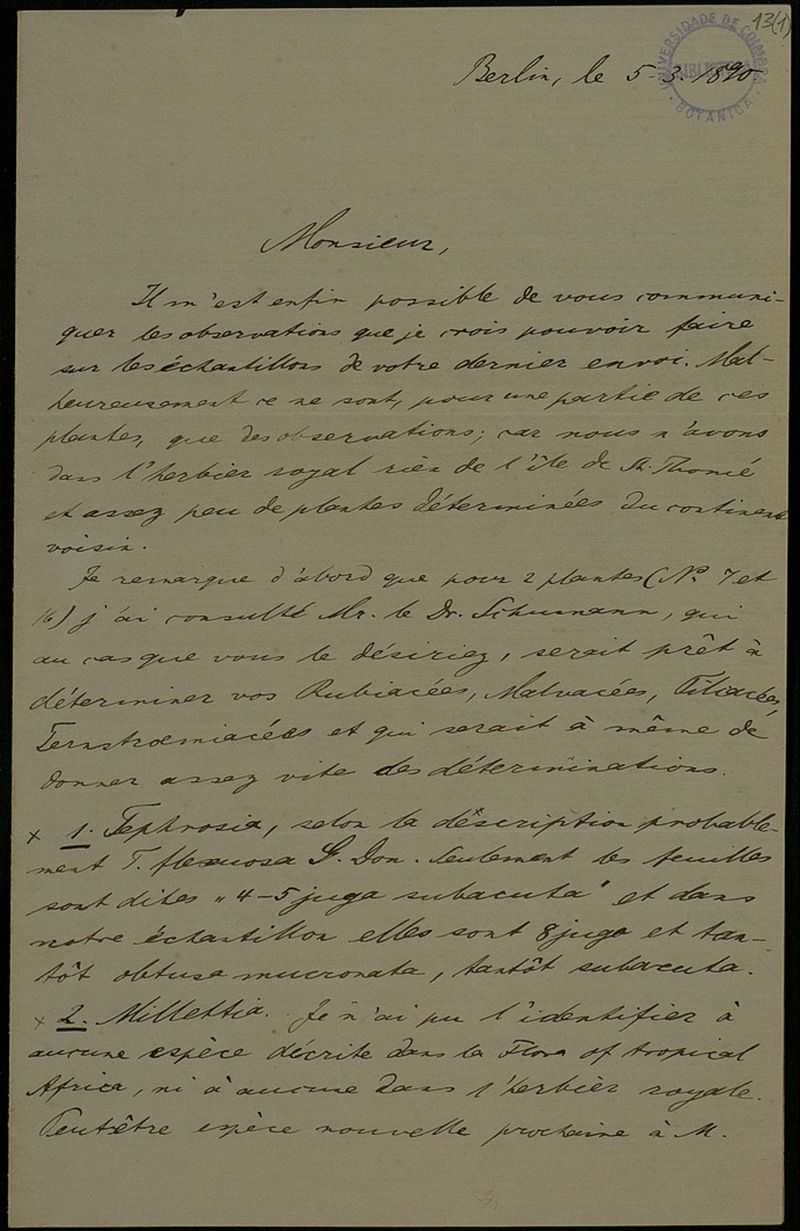 13(1)
UNIVERSIDADE DE COIMBRA
BOTANICA
Berlin, le 5-3-1890
Monsieur,
Il m'est enfin possible de vous communi-
quer les observations que je crois pouvoir faire
sur les échantillons de votre dernier envoi. Mal-
heureusement ce ne sont, pour une partie de ces
plantes, que des observations; car nous n'avons
dans l'herbier royal rien de l'île de St. Thomé
et assez peu de plantes déterminées du continent
voisin.
Je remarque d'abord que pour 2 plantes (No. 7 et
16) j'ai consulté Mr. le Dr. Schumann, qui
au cas que vous le désiriez, serait prêt à
déterminer vos Rubiacées, Malvacées, Tiliacées,
Ternstroemiacées et qui serait à même de
donner assez vite des déterminations.
x 1. Tephrosia, selon la déscription probable-
ment T. flexuosa G. Don. Seulement les feuilles
sont dites „4-5 juga subacuta" et dans
notre échantillon elles sont 8 juga et tan-
tôt obtusa mucronata, tantôt subacuta.
x 2. Millettia. Je n'ai pu l'identifier à
aucune espèce décrite dans la Flora of tropical
Africa, ni à aucune dans l'herbier royale.
Peutêtre espèce nouvelle prochaine à M.